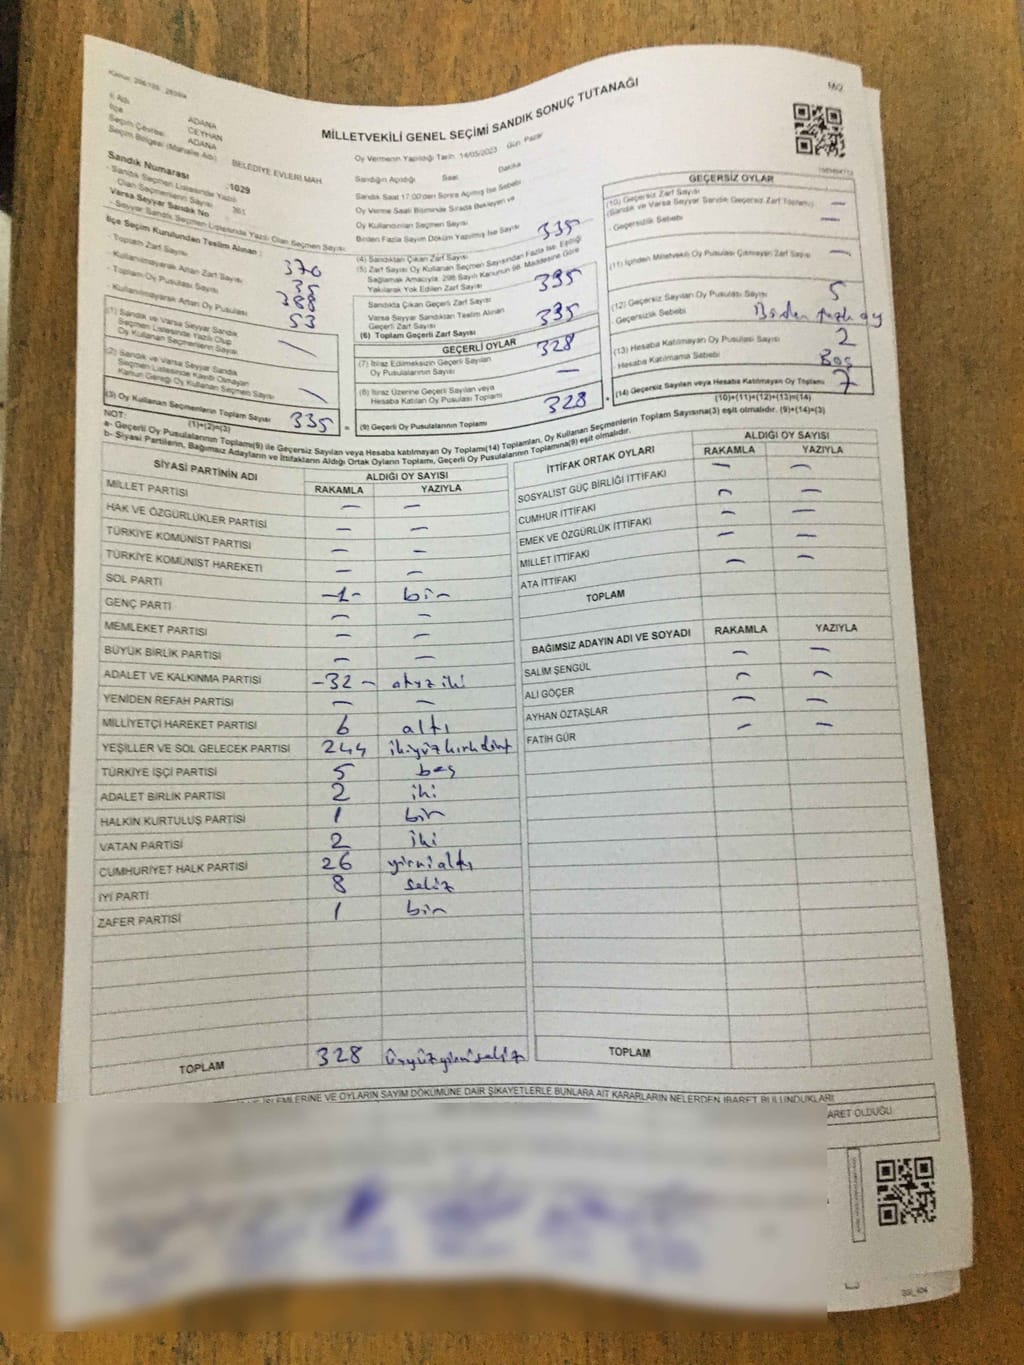 MİLLETVEKİLİ GENEL SEÇİMİ SANDIK SONUÇ TUTANAĞI
İl Adı ADANA
İlçe CEYHAN
Seçim Çevresi ADANA
Seçim Bölgesi (Mahalle Adı) BELEDİYE EVLERİ MAH
Sandık Numarası :1029
- Sandık Seçmen Listesinde Yazılı
Olan Seçmenlerin Sayısı 361
Varsa Seyyar Sandık No
- Seyyar Sandık Seçmen Listesinde Yazılı Olan Seçmen Sayısı
İlçe Seçim Kurulundan Teslim Alınan :
- Toplam Zarf Sayısı 370
- Kullanılmayarak Artan Zarf Sayısı 35
- Toplam Oy Pusulası Sayısı 388
- Kullanılmayarak Artan Oy Pusulası 53
(1) Sandık ve Varsa Seyyar Sandık
Seçmen Listesinde Yazılı Olup
Oy Kullanan Seçmenlerin Sayısı
(2) Sandık ve Varsa Seyyar Sandık
Seçmen Listesinde Kaydı Olmayan
Kanun Gereği Oy Kullanan Seçmen Sayısı
(3) Oy Kullanan Seçmenlerin Toplam Sayısı
(1)+(2)=(3) 335
Oy Vermenin Yapıldığı Tarih: 14/05/2023 Gün: Pazar
Sandığın Açıldığı Saat Dakika
Sandık Saat 17:00'den Sonra Açılmış İse Sebebi
Oy Verme Saati Bitiminde Sırada Bekleyen ve
Oy Kullandırılan Seçmen Sayısı
Birden Fazla Sayım Döküm Yapılmış İse Sayısı
(4) Sandıktan Çıkan Zarf Sayısı 335
(5) Zarf Sayısı Oy Kullanan Seçmen Sayısından Fazla İse, Eşitliği
Sağlamak Amacıyla, 298 Sayılı Kanunun 98. Maddesine Göre
Yakılarak Yok Edilen Zarf Sayısı
Sandıkta Çıkan Geçerli Zarf Sayısı 335
Varsa Seyyar Sandıktan Teslim Alınan
Geçerli Zarf Sayısı
(6) Toplam Geçerli Zarf Sayısı 335
GEÇERLİ OYLAR
(7) İtiraz Edilmeksizin Geçerli Sayılan
Oy Pusulalarının Sayısı 328
(8) İtiraz Üzerine Geçerli Sayılan veya
Hesaba Katılan Oy Pusulası Toplamı —
(9) Geçerli Oy Pusulalarının Toplamı 328
GEÇERSİZ OYLAR
(10) Geçersiz Zarf Sayısı
(Sandık ve Varsa Seyyar Sandık Geçersiz Zarf Toplamı) —
- Geçersizlik Sebebi —
(11) İçinden Milletvekili Oy Pusulası Çıkmayan Zarf Sayısı —
(12) Geçersiz Sayılan Oy Pusulası Sayısı 5
Geçersizlik Sebebi Birden fazla oy
(13) Hesaba Katılmayan Oy Pusulası Sayısı 2
Hesaba Katılmama Sebebi Boş
(14) Geçersiz Sayılan veya Hesaba Katılmayan Oy Toplamı 7
(10)+(11)+(12)+(13)=(14)
NOT:
a- Geçerli Oy Pusulalarının Toplamı(9) ile Geçersiz Sayılan veya Hesaba katılmayan Oy Toplamı(14) Toplamları, Oy Kullanan Seçmenlerin Toplam Sayısına(3) eşit olmalıdır. (9)+(14)=(3)
b- Siyasi Partilerin, Bağımsız Adayların ve İttifakların Aldığı Ortak Oyların Toplamı, Geçerli Oy Pusulalarının Toplamına(9) eşit olmalıdır.
SİYASİ PARTİNİN ADI ALDIĞI OY SAYISI
RAKAMLA YAZIYLA
MİLLET PARTİSİ — —
HAK VE ÖZGÜRLÜKLER PARTİSİ — —
TÜRKİYE KOMÜNİST PARTİSİ — —
TÜRKİYE KOMÜNİST HAREKETİ — —
SOL PARTİ -1- bir
GENÇ PARTİ — —
MEMLEKET PARTİSİ — —
BÜYÜK BİRLİK PARTİSİ — —
ADALET VE KALKINMA PARTİSİ -32- otuz iki
YENİDEN REFAH PARTİSİ — —
MİLLİYETÇİ HAREKET PARTİSİ 6 altı
YEŞİLLER VE SOL GELECEK PARTİSİ 244 ikiyüzkırkdört
TÜRKİYE İŞÇİ PARTİSİ 5 beş
ADALET BİRLİK PARTİSİ 2 iki
HALKIN KURTULUŞ PARTİSİ 1 bir
VATAN PARTİSİ 2 iki
CUMHURİYET HALK PARTİSİ 26 yirmialtı
İYİ PARTİ 8 sekiz
ZAFER PARTİSİ 1 bir
TOPLAM 328 üçyüzyirmisekiz
İTTİFAK ORTAK OYLARI ALDIĞI OY SAYISI
RAKAMLA YAZIYLA
SOSYALİST GÜÇ BİRLİĞİ İTTİFAKI — —
CUMHUR İTTİFAKI — —
EMEK VE ÖZGÜRLÜK İTTİFAKI — —
MİLLET İTTİFAKI — —
ATA İTTİFAKI — —
TOPLAM
BAĞIMSIZ ADAYIN ADI VE SOYADI RAKAMLA YAZIYLA
SALİM ŞENGÜL — —
ALİ GÖÇER — —
AYHAN ÖZTAŞLAR — —
FATİH GÜR — —
TOPLAM
İŞLEMLERİNE VE OYLARIN SAYIM DÖKÜMÜNE DAİR ŞİKAYETLERLE BUNLARA AİT KARARLARIN NELERDEN İBARET BULUNDUKLARI
ARET OLDUĞU